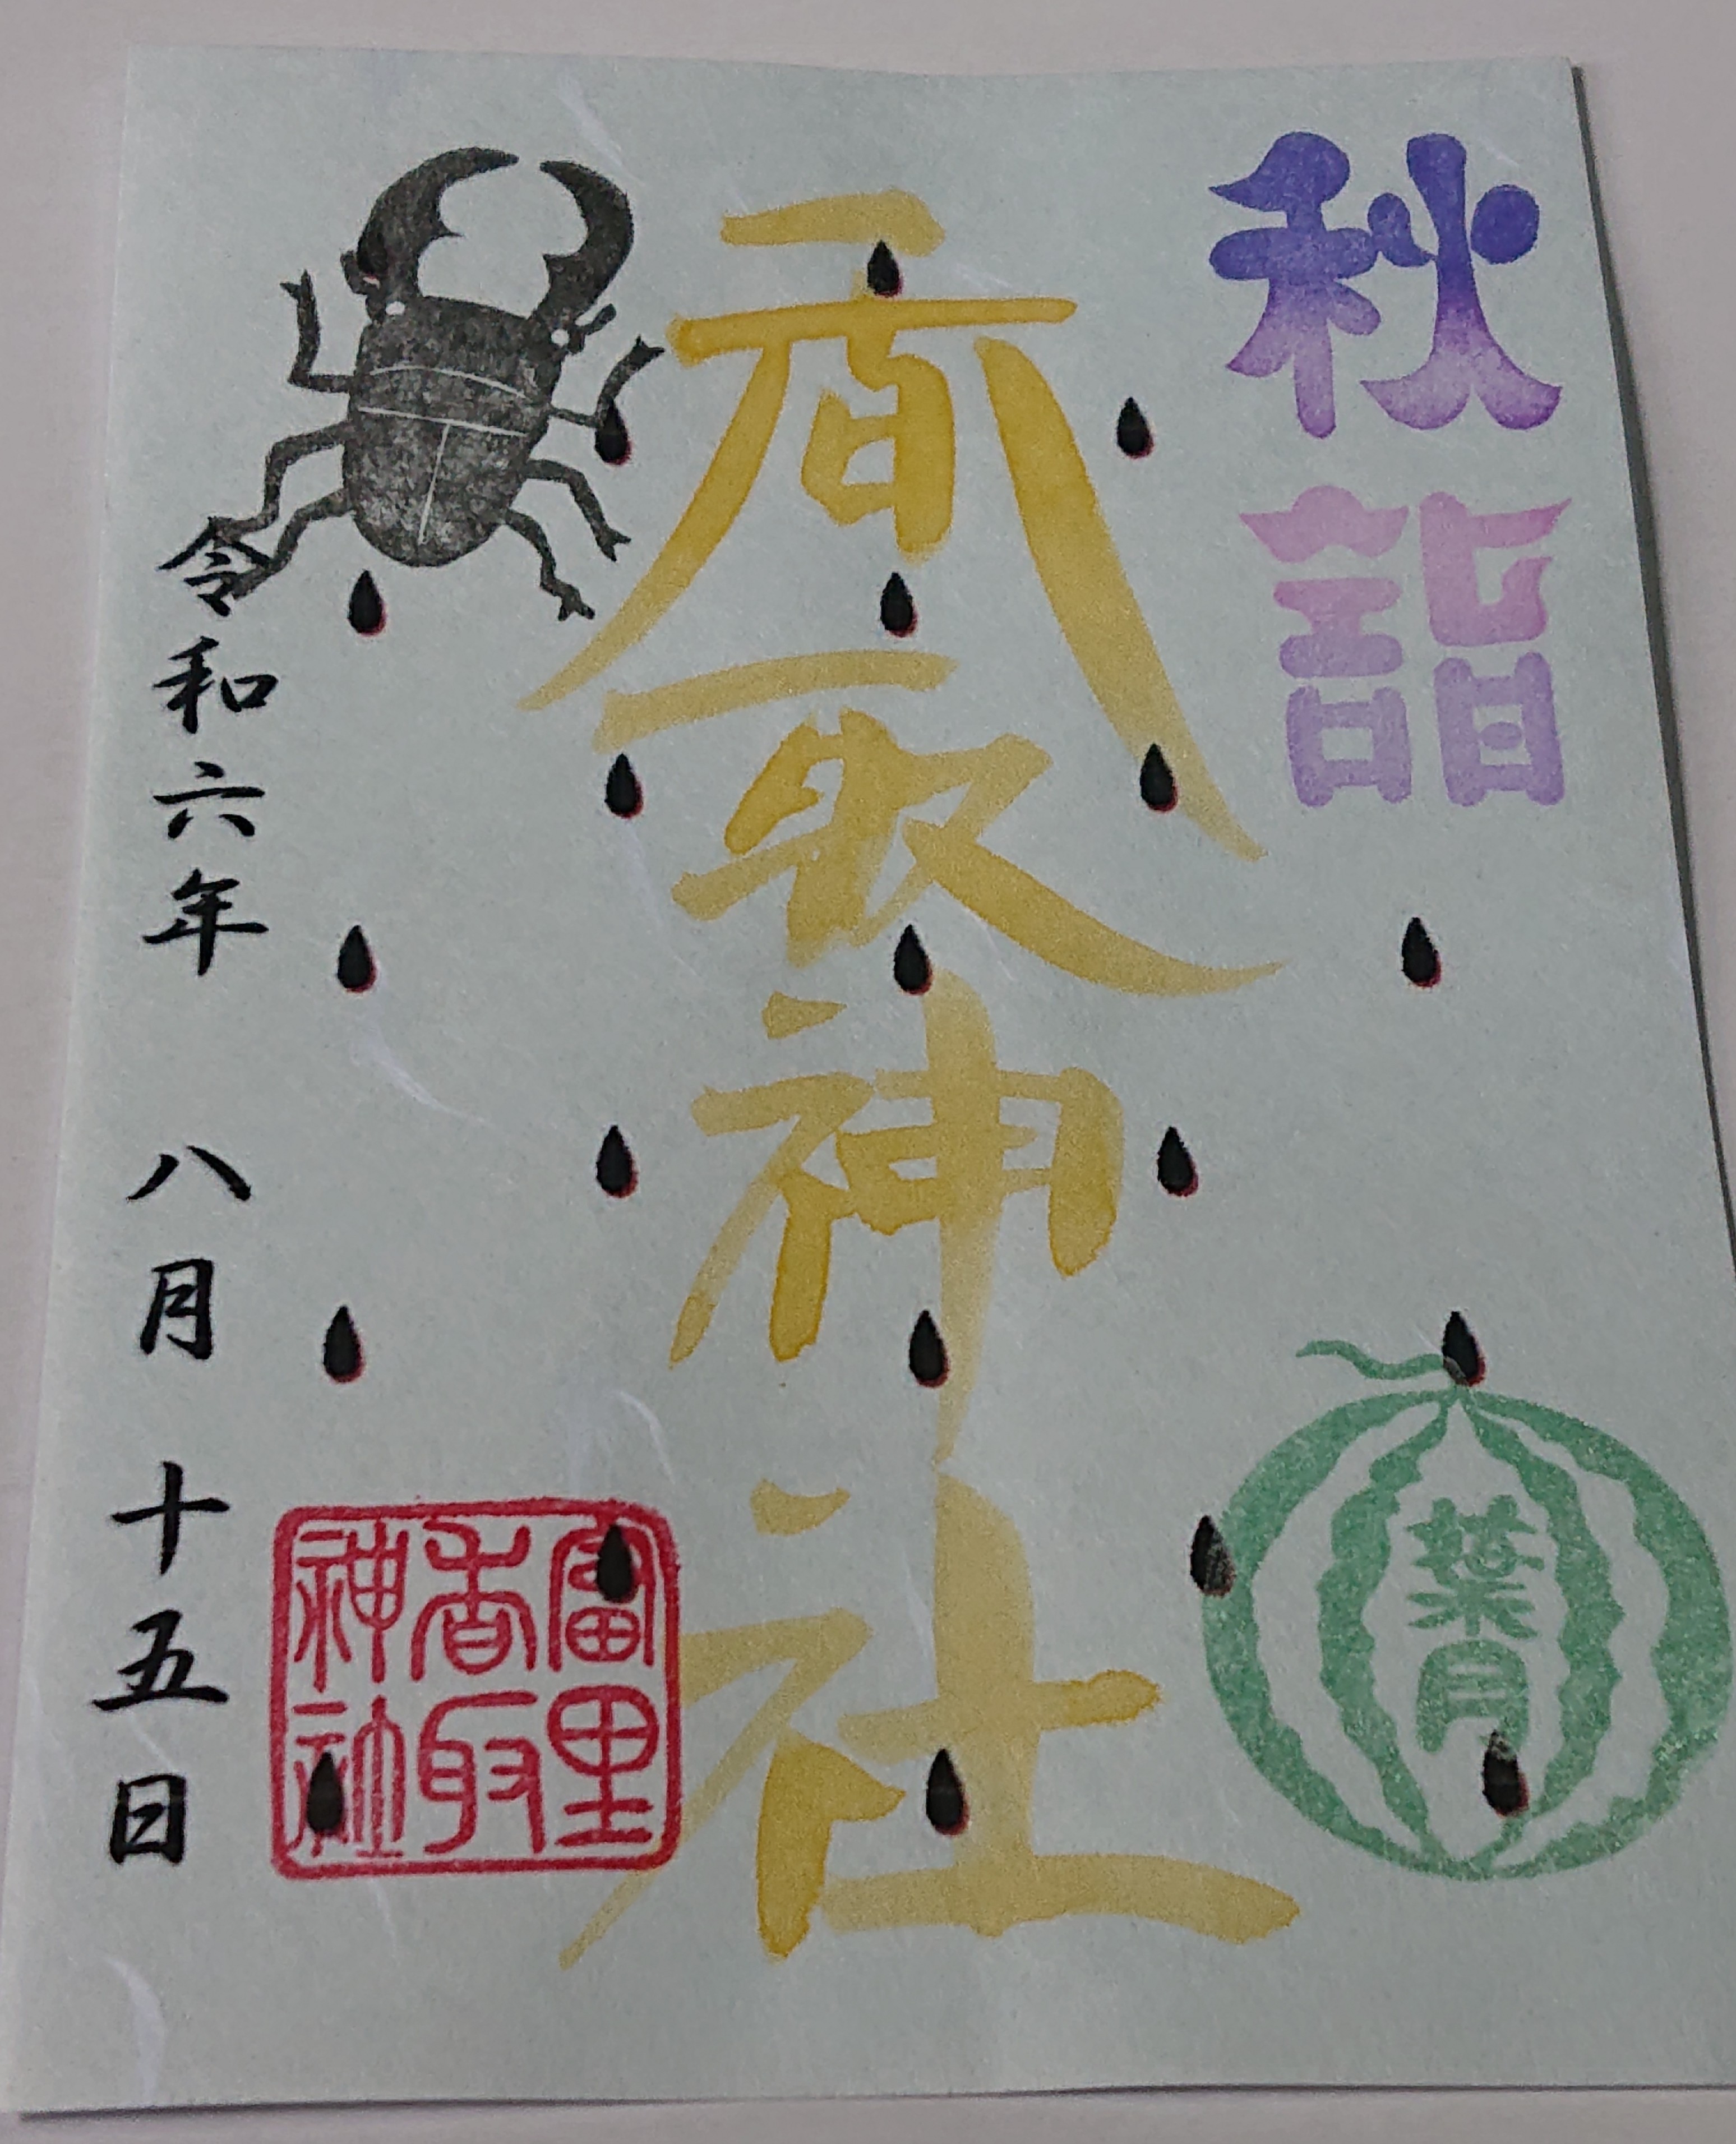 秋詣
葉月
香取神社
富里
香取
神社
令和六年 八月 十五日